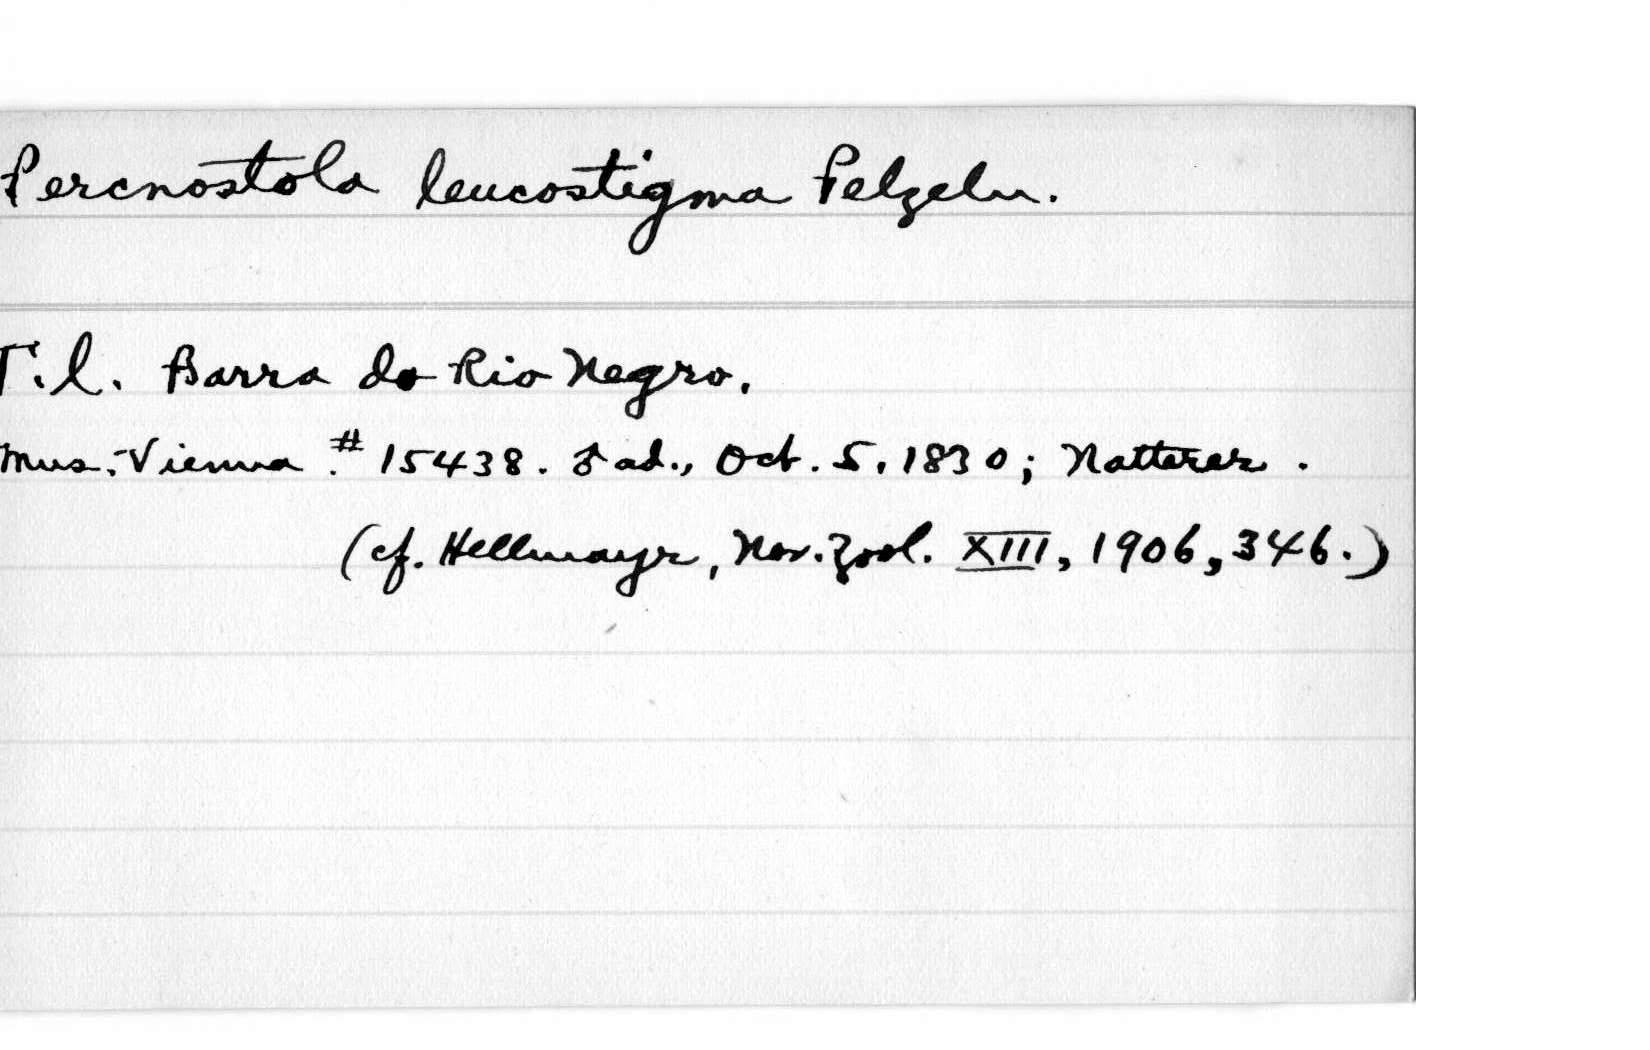 Percnostola leucostigma Pelzeln.
T.l. Barra do Rio Negro.
Mus. Vienna # 15438. ♂ ad., Oct. 5, 1830; Natterer.
(cf. Hellmayr, Nov. Zool. XIII, 1906, 346.)